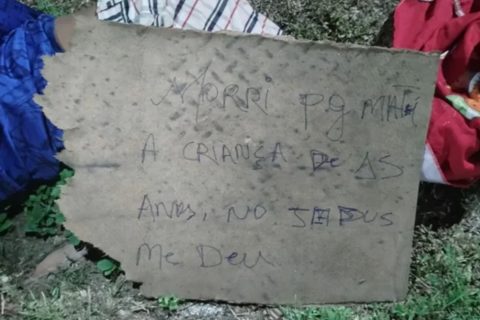 MORRI pq MATEI
A CRIANÇA DE 15
ANOS, NO JESUS
Me Deu